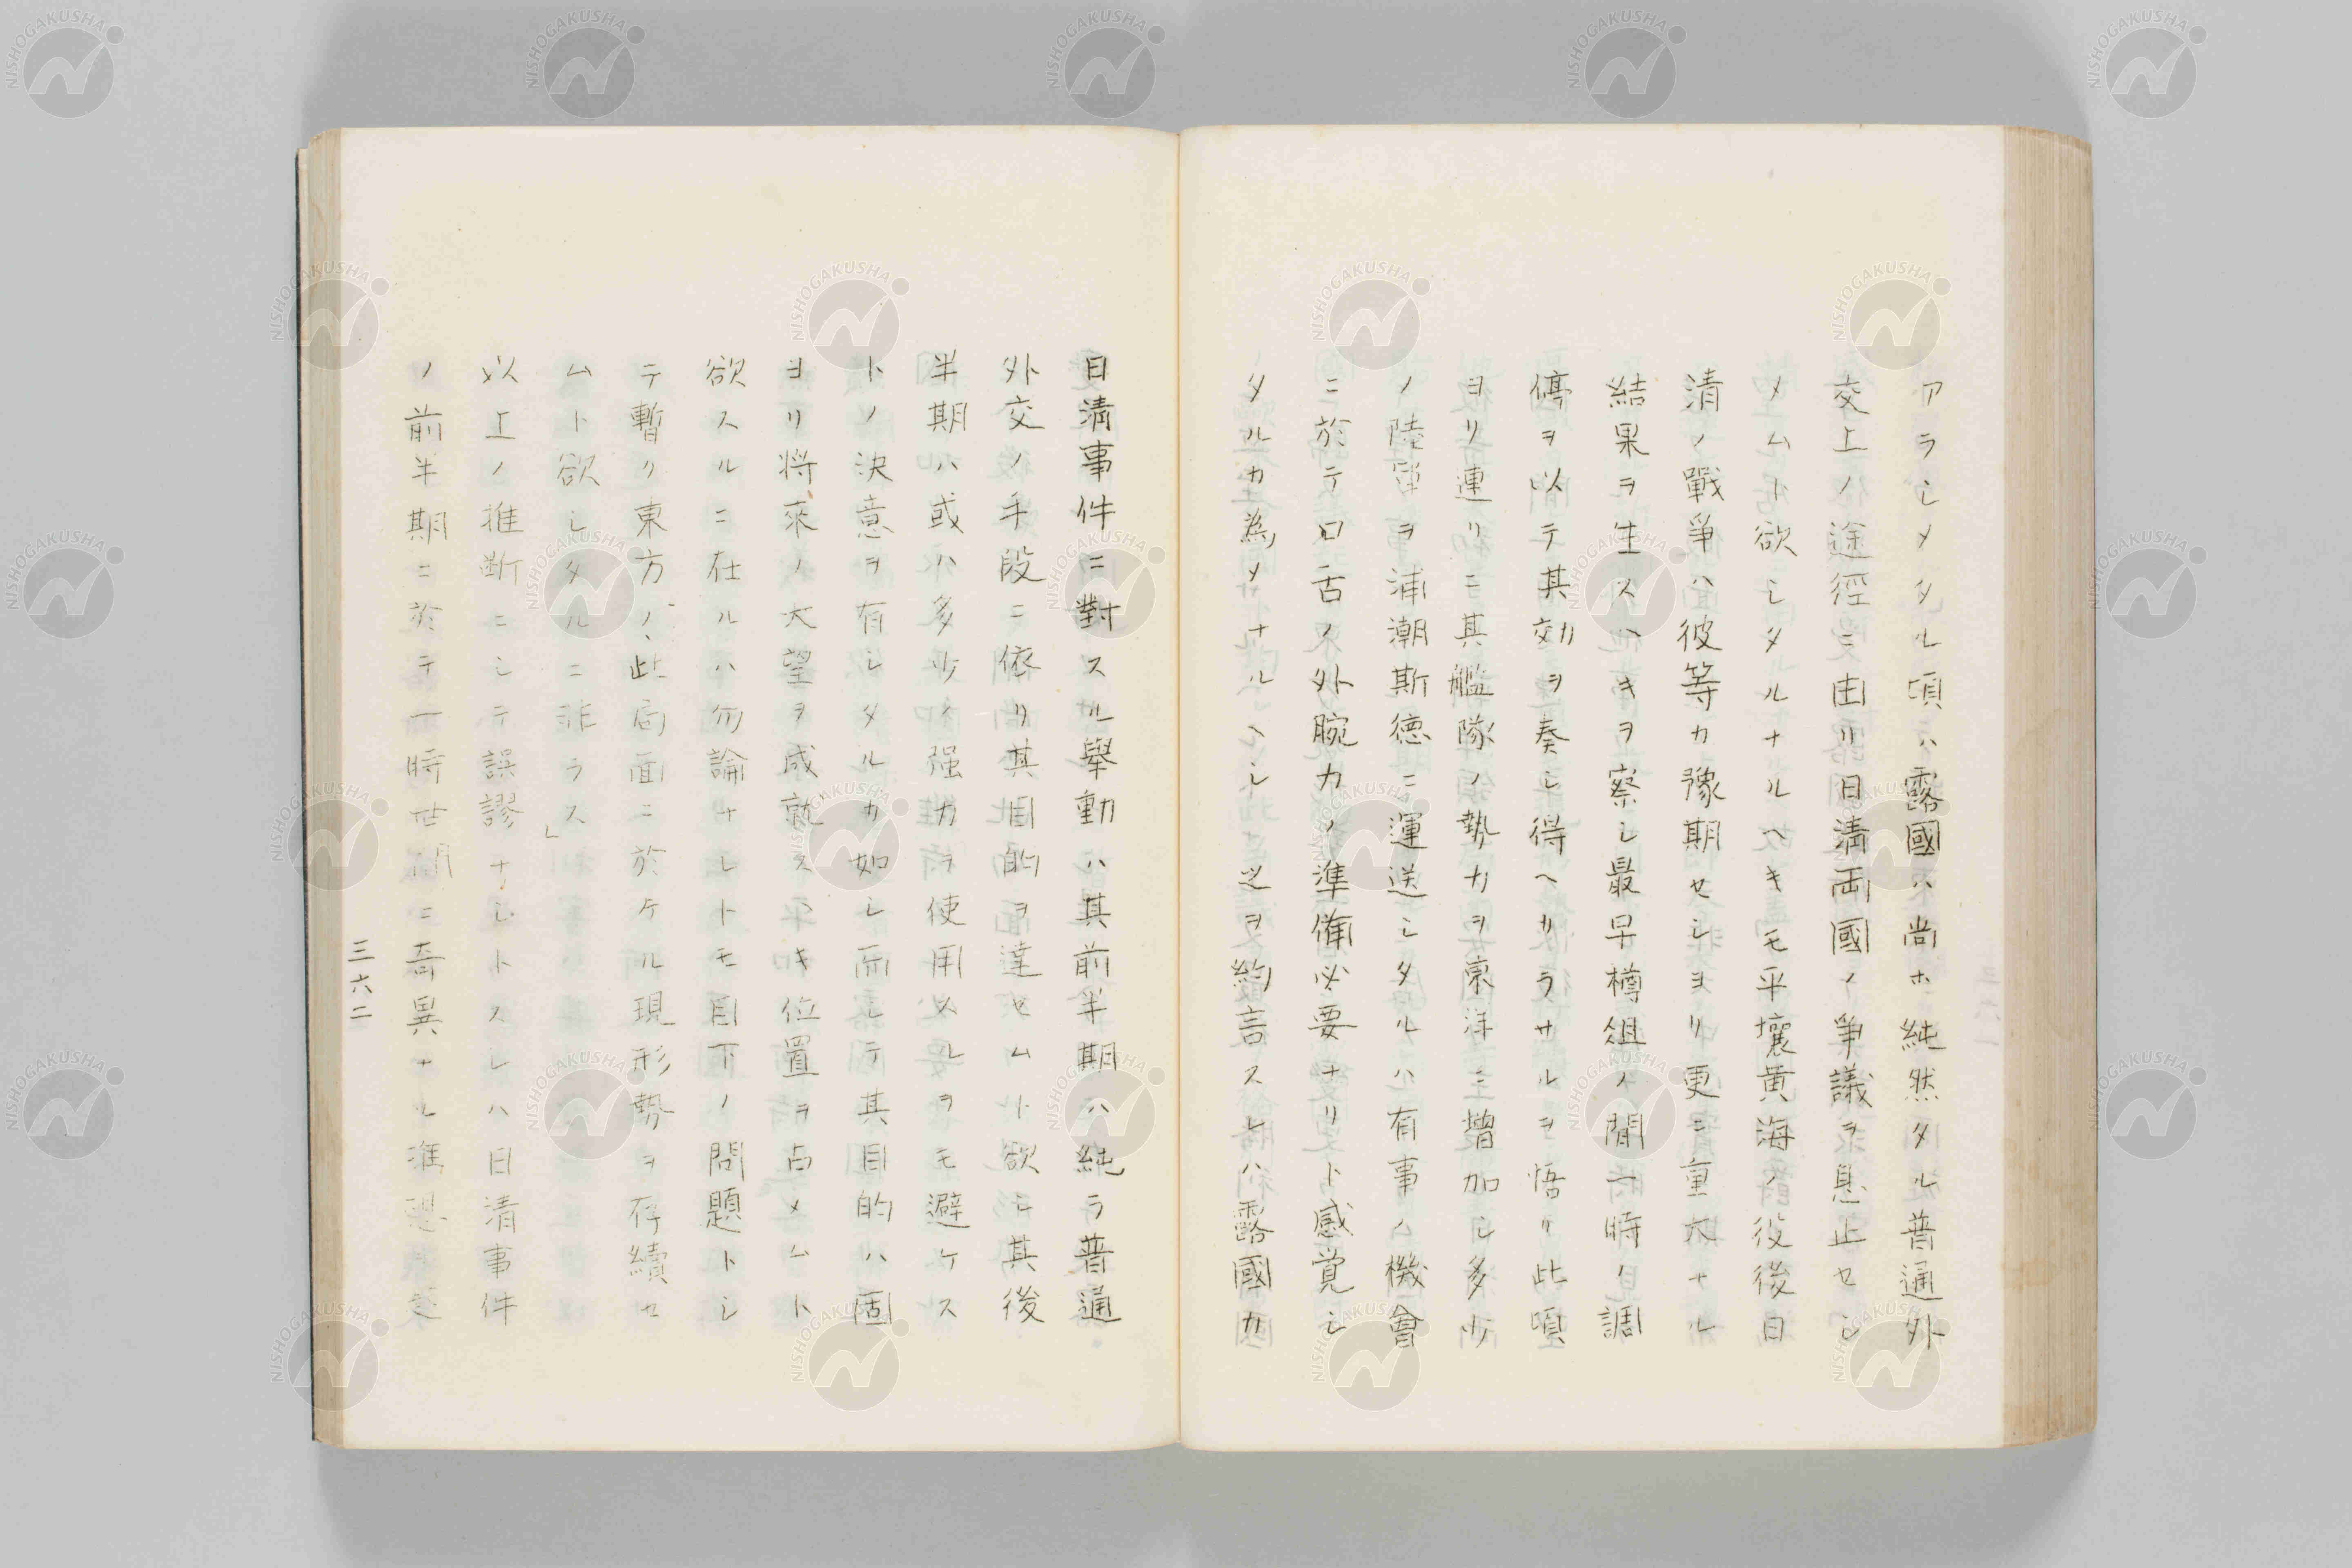 アラシメタル頃ハ露國ハ尚ホ純然タル普通外
交上ノ途徑ニ由リ日清両國ノ争議ヲ息止セシ
メムト欲シタルナルヘキモ平壤黄海ノ役後日
清ノ戰爭ハ彼等カ豫期セシヨリ更ニ重大ナル
結果ヲ生スヘキヲ察シ最早樽俎ノ間一時ノ調
停ヲ以テ其効ヲ奏シ得ヘカラサルヲ悟リ此頃
ヨリ連リニ其艦隊ノ勢力ヲ東洋ニ増加シ多少
ノ陸軍ヲ浦潮斯德ニ運送シタルハ有事ノ機會
ニ於テ口舌ノ外腕力ノ準備必要ナリト感覚シ
タルカ為メナルヘシ之ヲ約言スレハ露國カ
日清事件ニ對スル擧動ハ其前半期ハ純ラ普通
外交ノ手段ニ依リ其目的ヲ達セムト欲シ其後
半期ハ或ハ多少ノ强力ヲ使用スルヲモ避ケス
トノ決意ヲ有シタルカ如シ而シテ其目的ハ固
ヨリ將來ノ大望ヲ成就スヘキ位置ヲ占メムト
欲スルニ在ルハ勿論ナレトモ目下ノ問題トシ
テ暫ク東方ノ此局面ニ於ケル現形勢ヲ存續セ
ムト欲シタルニ非ラス」
以上ノ推断ニシテ誤謬ナシトスレハ日清事件
ノ前半期ニ於テ一時世間ニ奇異ナル
三六二
NISHOGAKUSHA